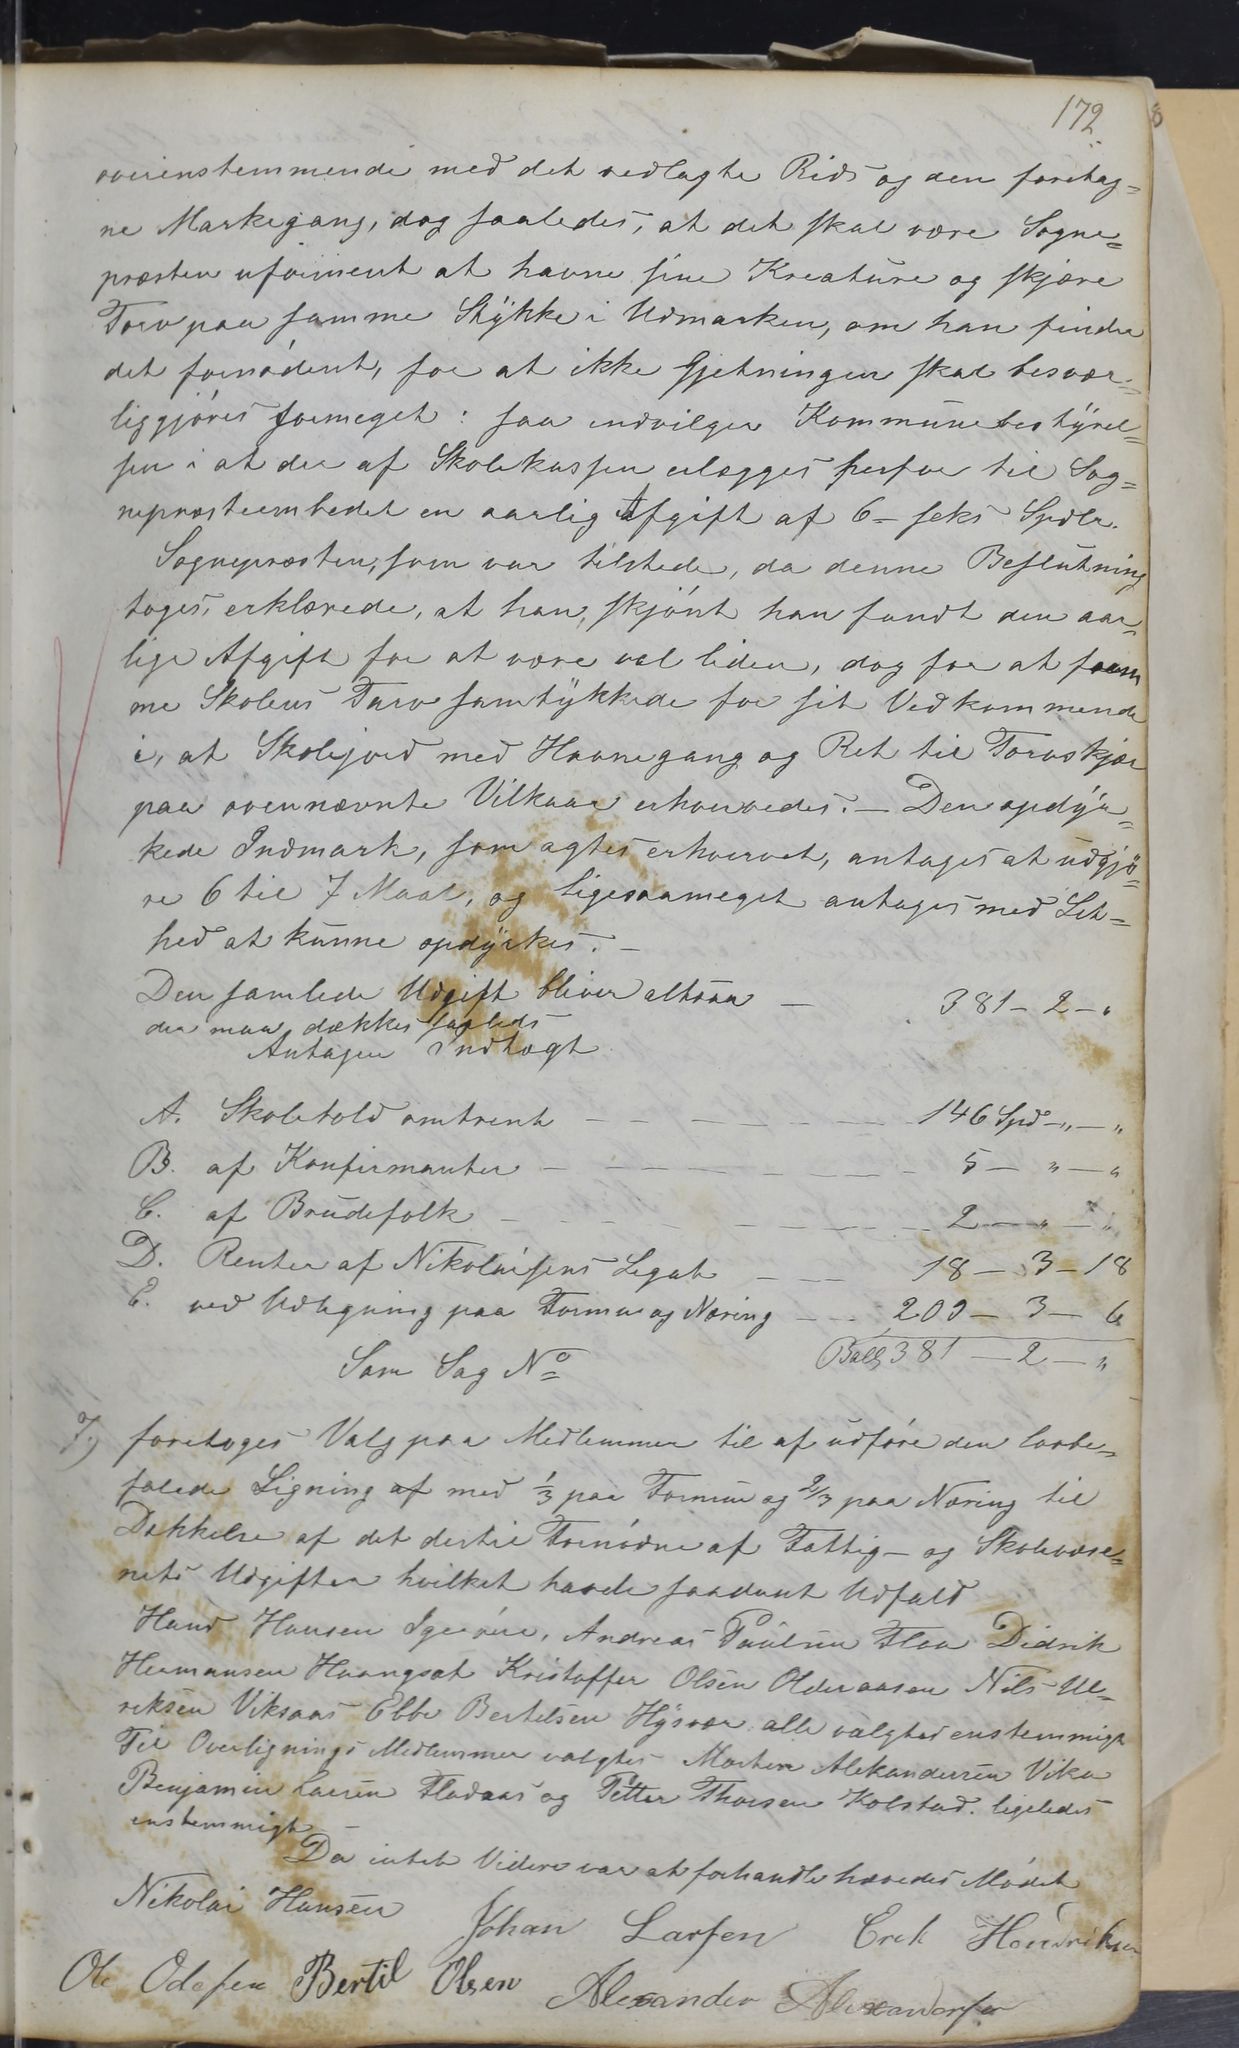 172.
overinstemmende med det vedlagte Rids og den foretag=
ne Markegang, dog saaledes, at det skal være Sogne=
præsten uforment at havne sine Kreature og skjære
Torv paa samme Stykke i Udmarken, om han finder
det fornødent, for at ikke Gjetningen skal besvær=
liggjøres formeget: saa indvilger Kommunebestyrel=
sen i at der af Skolekassen erlægges herfor til Sog=
nepræsteembedet en aarlig Afgift af 6 - seks Spdlr.
Sognepræsten, som var tilstede, da denne Beslutning
toges, erklærede, at han, skjønt han fandt den aar=
lige Afgift for at være vel liden, dog for at fræm
me Skolens Tarv samtykkede for sit Vedkommende
i, at Skolejord med Havnegang og Ret til Torvskjær
paa ovennævnte Vilkaar erhvervedes. - Den opdyr=
kede Indmark, som agtes erhvervet, antages at udgjø=
re 6 til 7 Maal, og ligesaameget antages med Let=
hed at kunne opdyrkes. -
Den samlede Udgift bliver altsaa - 381 - 2 - "
der maa dækkes saaleds
Antagen Indtægt
A. Skoletold omtrent - 146 Spd - " - "
B. af Konfirmanter - 5 - " - "
C. af Brudefolk - 2 - " - "
D. Renter af Nikolaisens Legat - 18 - 3 - 18
E. ved Udligning paa Formue og Næring - 209 - 3 - 6
Ball 381 - 2 - "
Som Sag No
7.) foretoges Valg paa Medlemmer til af udføre den lovbe=
falede Ligning af med 1/3 paa Formue og 2/3 paa Næring til
Dækkelse af det dertil Fornødne af Fattig- og Skolevæse=
nets Udgifter hvilket havde saadant Udfald
Hans Hansen Igerøen, Andreas Paulsen Floa Didrik
Hermansen Haangsæt Kristoffer Olsen Olderaasen Nils Ul=
riksen Viksaas Ebbe Bertelsen Hysvær alle valgtes enstemmigt
Til Overlignings Medlemmer valgtes Morten Aleksandersen Vika
Benjamin Larsen Fladaas og Petter Thorsen Kolstad. ligeledes
enstemmigt
Da intet Videre var at forhandle hævedes Mødet
Nikolai Hansen Johan Larsen Erek Hendriksen
Ole Edisen Bertil Olsen Alexander Alexandersen